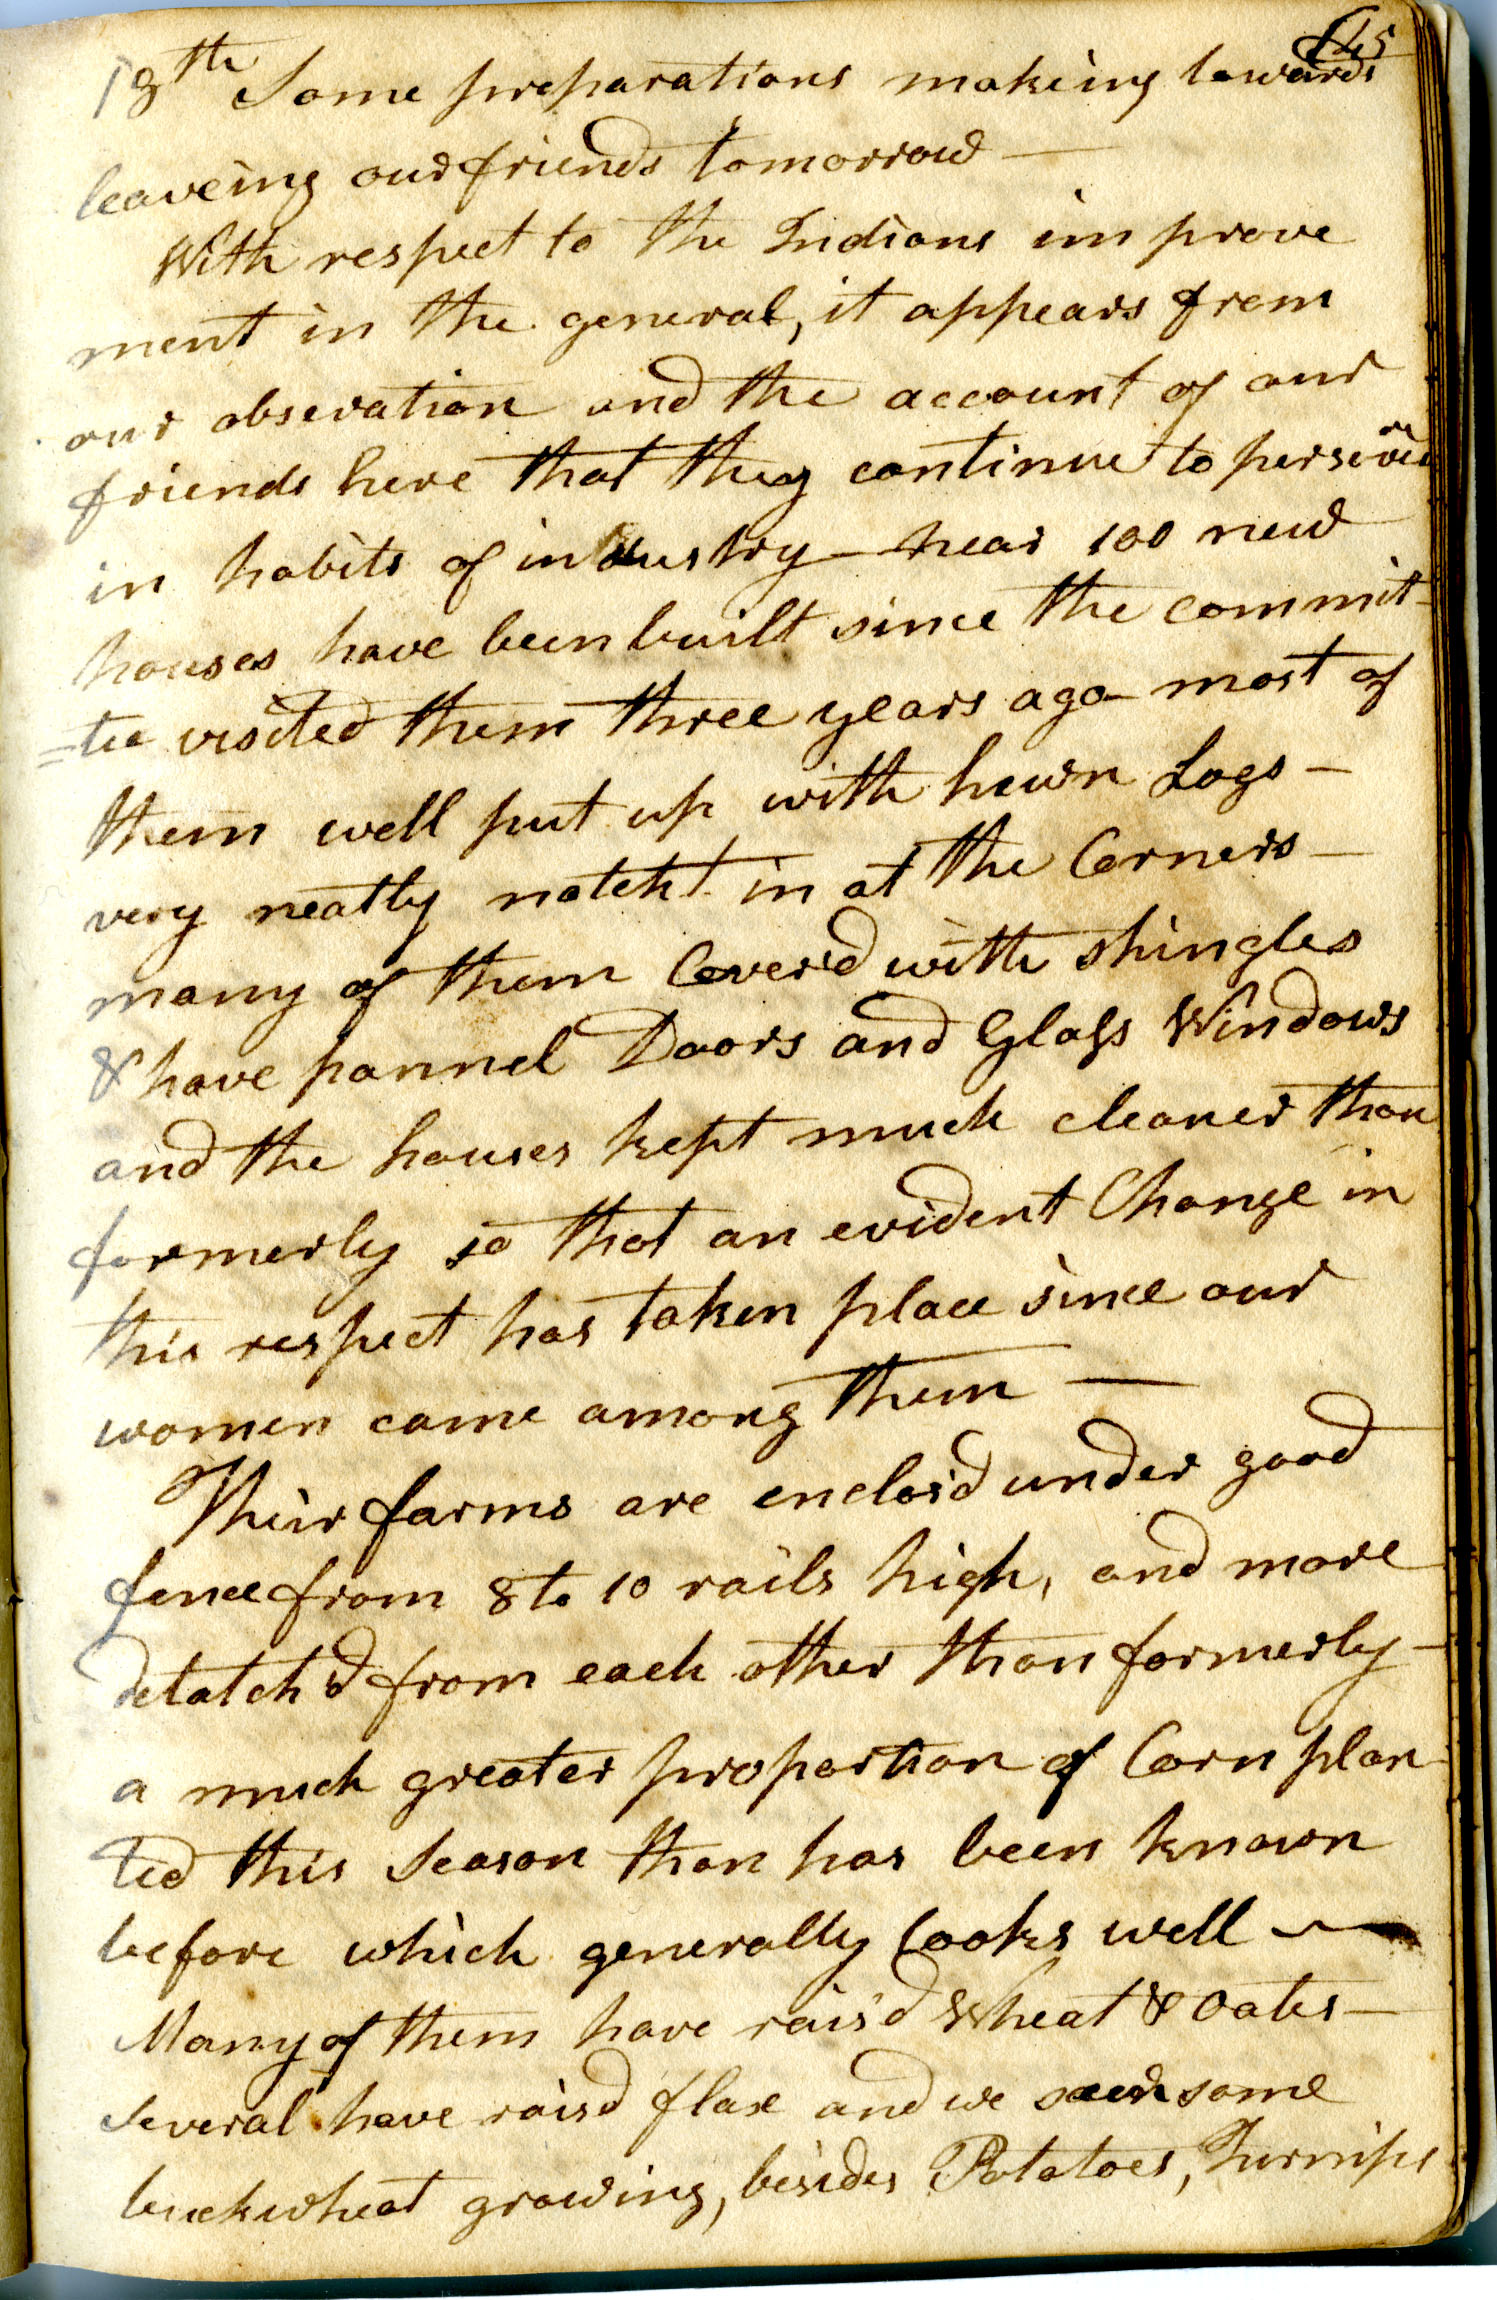 18th Some preparations makeing towards
leaveing our friends tomorrow —
With respect to the Indians improve
ment in the general, it appears from
our obseration and the account of our
friends here that they continue to persevere
in habits of industry — near 100 new
houses have been built since the commit-
=tee visited them three years ago — most of
them well put up with hewn Logs —
very neatly notcht in at the Corners —
many of them Cover'd with shingles
& have pannel Doors and Glass Windows
and the houses kept much cleaner than
formerly so that an evident Change in
this respect has taken place since our
women came among them —
Their farms are enclos'd under good
fence from 8 to 10 rails high, and more
detatch'd from each other than formerly —
a much greater proportion of Corn plan
ted this Season than has been known
before which generally looks well —
Many of them have rais'd Wheat & Oates —
Several have rais'd flax and we some
buckwheat growing, besides Potatoes, Turnips